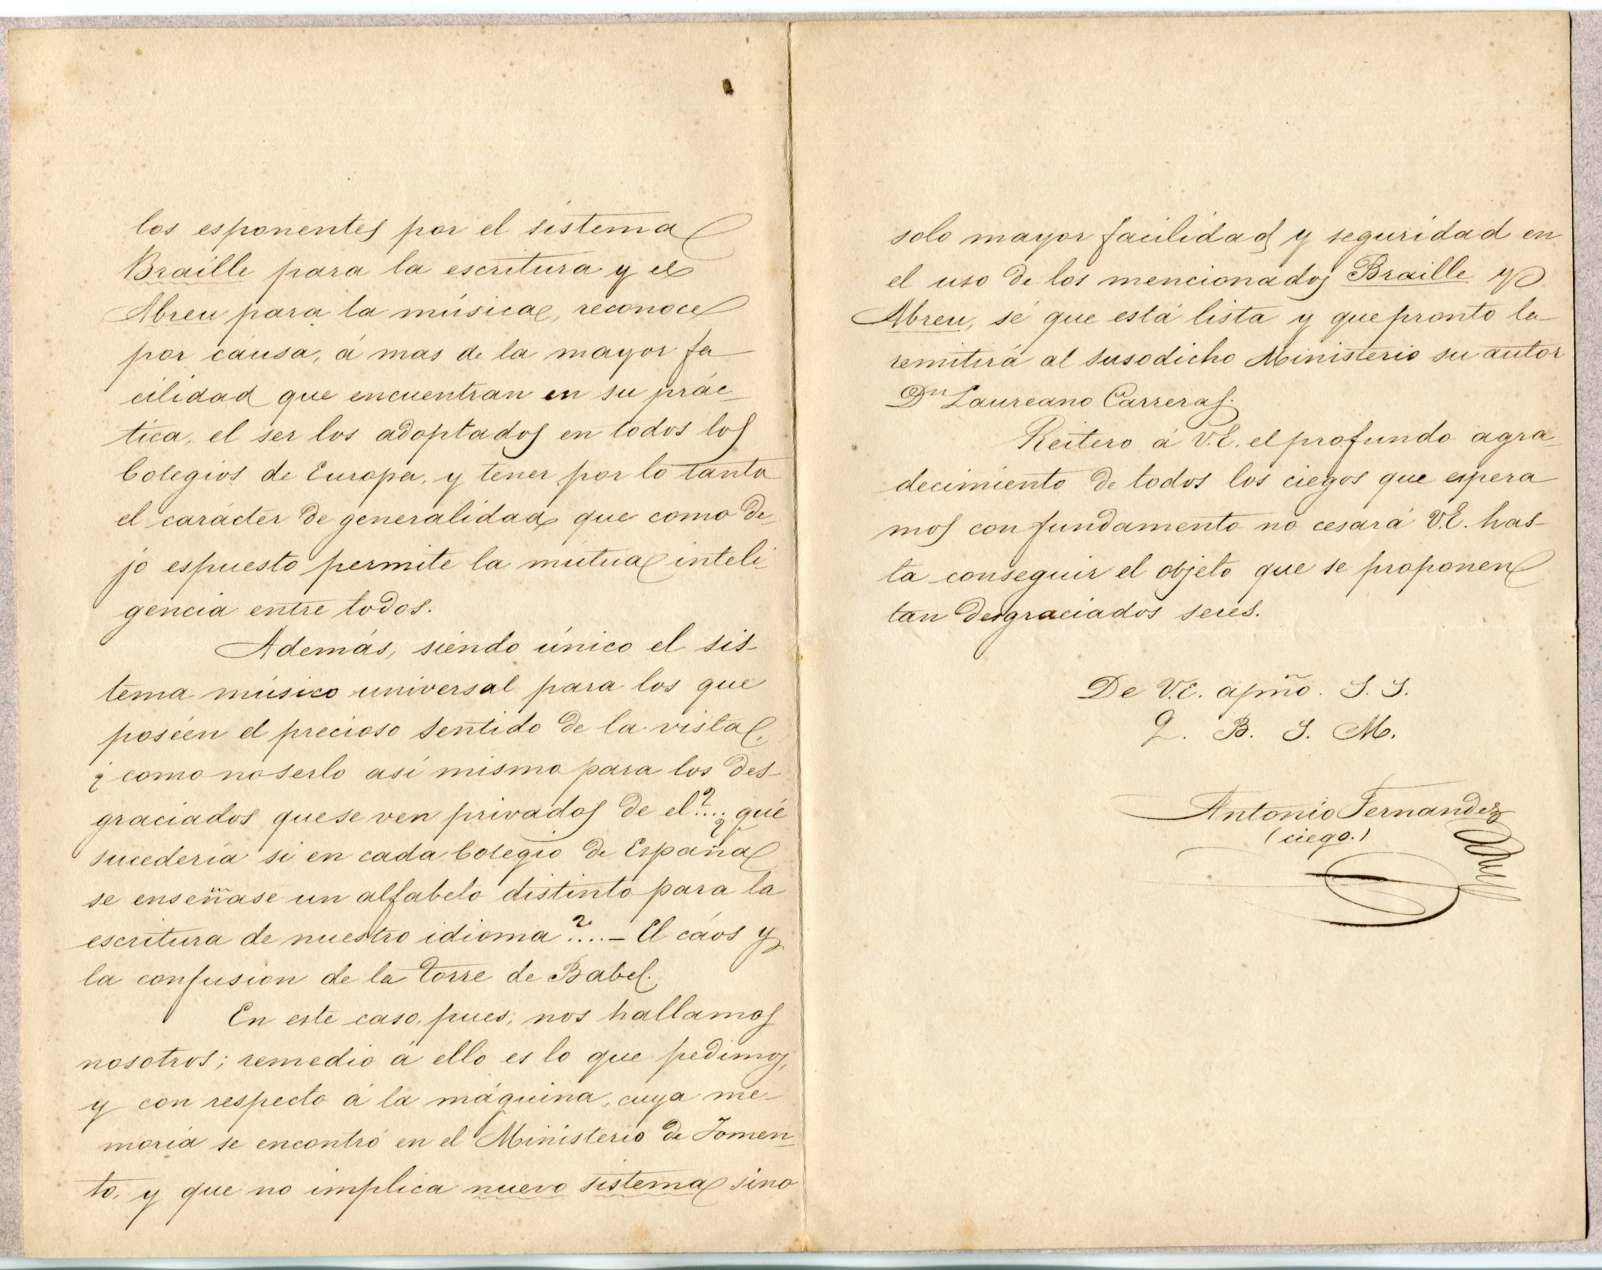 los esponentes por el sistema
Braille para la escritura y el
Abreu para la música, reconoce
por causa, á mas de la mayor fa
cilidad que encuentran en su prác-
tica, el ser los adoptados en todos los
Colegios de Europa, y tener por lo tanto
el carácter de generalidad que como de
jo espuesto permite la mútua inteli
gencia entre todos.
Además, siendo único el sis-
tema músico universal para los que
poséen el precioso sentido de la vista,
¿como no serlo así mismo para los des-
graciados que se ven privados de el?.... ¿qué
sucedería si en cada Colegio de España
se enseñase un alfabeto distinto para la
escritura de nuestro idioma?....- El cáos y
la confusion de la torre de Babel.
En este caso, pues, nos hallamos
nosotros; remedio á ello es lo que pedimos,
y con respecto á la máquina, cuya me-
moria se encontró en el Ministerio de Fomen-
to, y que no implica nuevo sistema sino
solo mayor facilidad y seguridad en
el uso de los mencionados Braille y
Abreu, sé que está lista y que pronto la
remitirá al susodicho Ministerio su autor
Dn Laureano Carreras.
Reitero á V.E. el profundo agra-
decimiento de todos los ciegos que espera
mos con fundamento no cesará V.E. has-
ta conseguir el objeto que se proponen
tan desgraciados seres.
De V.E. apmo. S. S.
Q. B. S. M.
Antonio Fernandez
(ciego.)